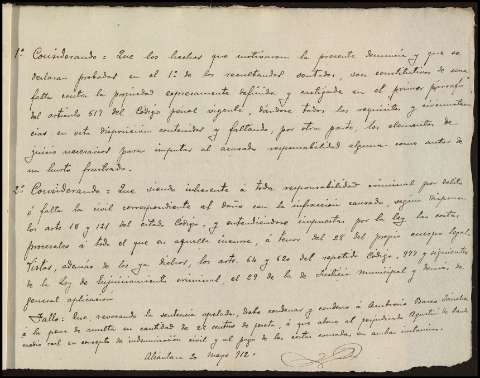 1º Considerando = Que los hechos que motivaron la presente denuncia y que se
declaran probados en el 1º de los resultandos sentados, son constitutivos de una
falta contra la propiedad expresamente definida y castigada en el primer párrafo
del artículo 617 del Código penal vigente, dándose todos los requisitos y circunstan
cias en esta disposición contenidas y faltando, por otra parte, los elementos de
juicio necesarios para imputar al acusado responsabilidad alguna como autor de
un hurto frustrado.
2º Considerando = Que siendo inherente á toda responsabilidad criminal por delito
ó falta la civil correspondiente al daño con la infracción causado, según disponen
los arts 18 y 121 del citado Código, y entendiéndose impuestas por la ley las costas
procesales á todo el que en aquella incurre, á tenor del 28 del propio cuerpo legal.
Vistos, además de los ya dichos, los arts. 64 y 620 del repetido Código, 977 y siguientes
de la Ley de Enjuiciamiento criminal, el 29 de la de Justicia municipal y demás de
general aplicación
Fallo: Que, revocando la sentencia apelada, debo condenar y condeno á Ambrosio
á la pena de multa en cantidad de céntimos de peseta, á que abone al perjudicado Agustín
medio real en concepto de indemnización civil y al pago de las costas causadas en ambas instancias.
Alcántara 20 Mayo 912.